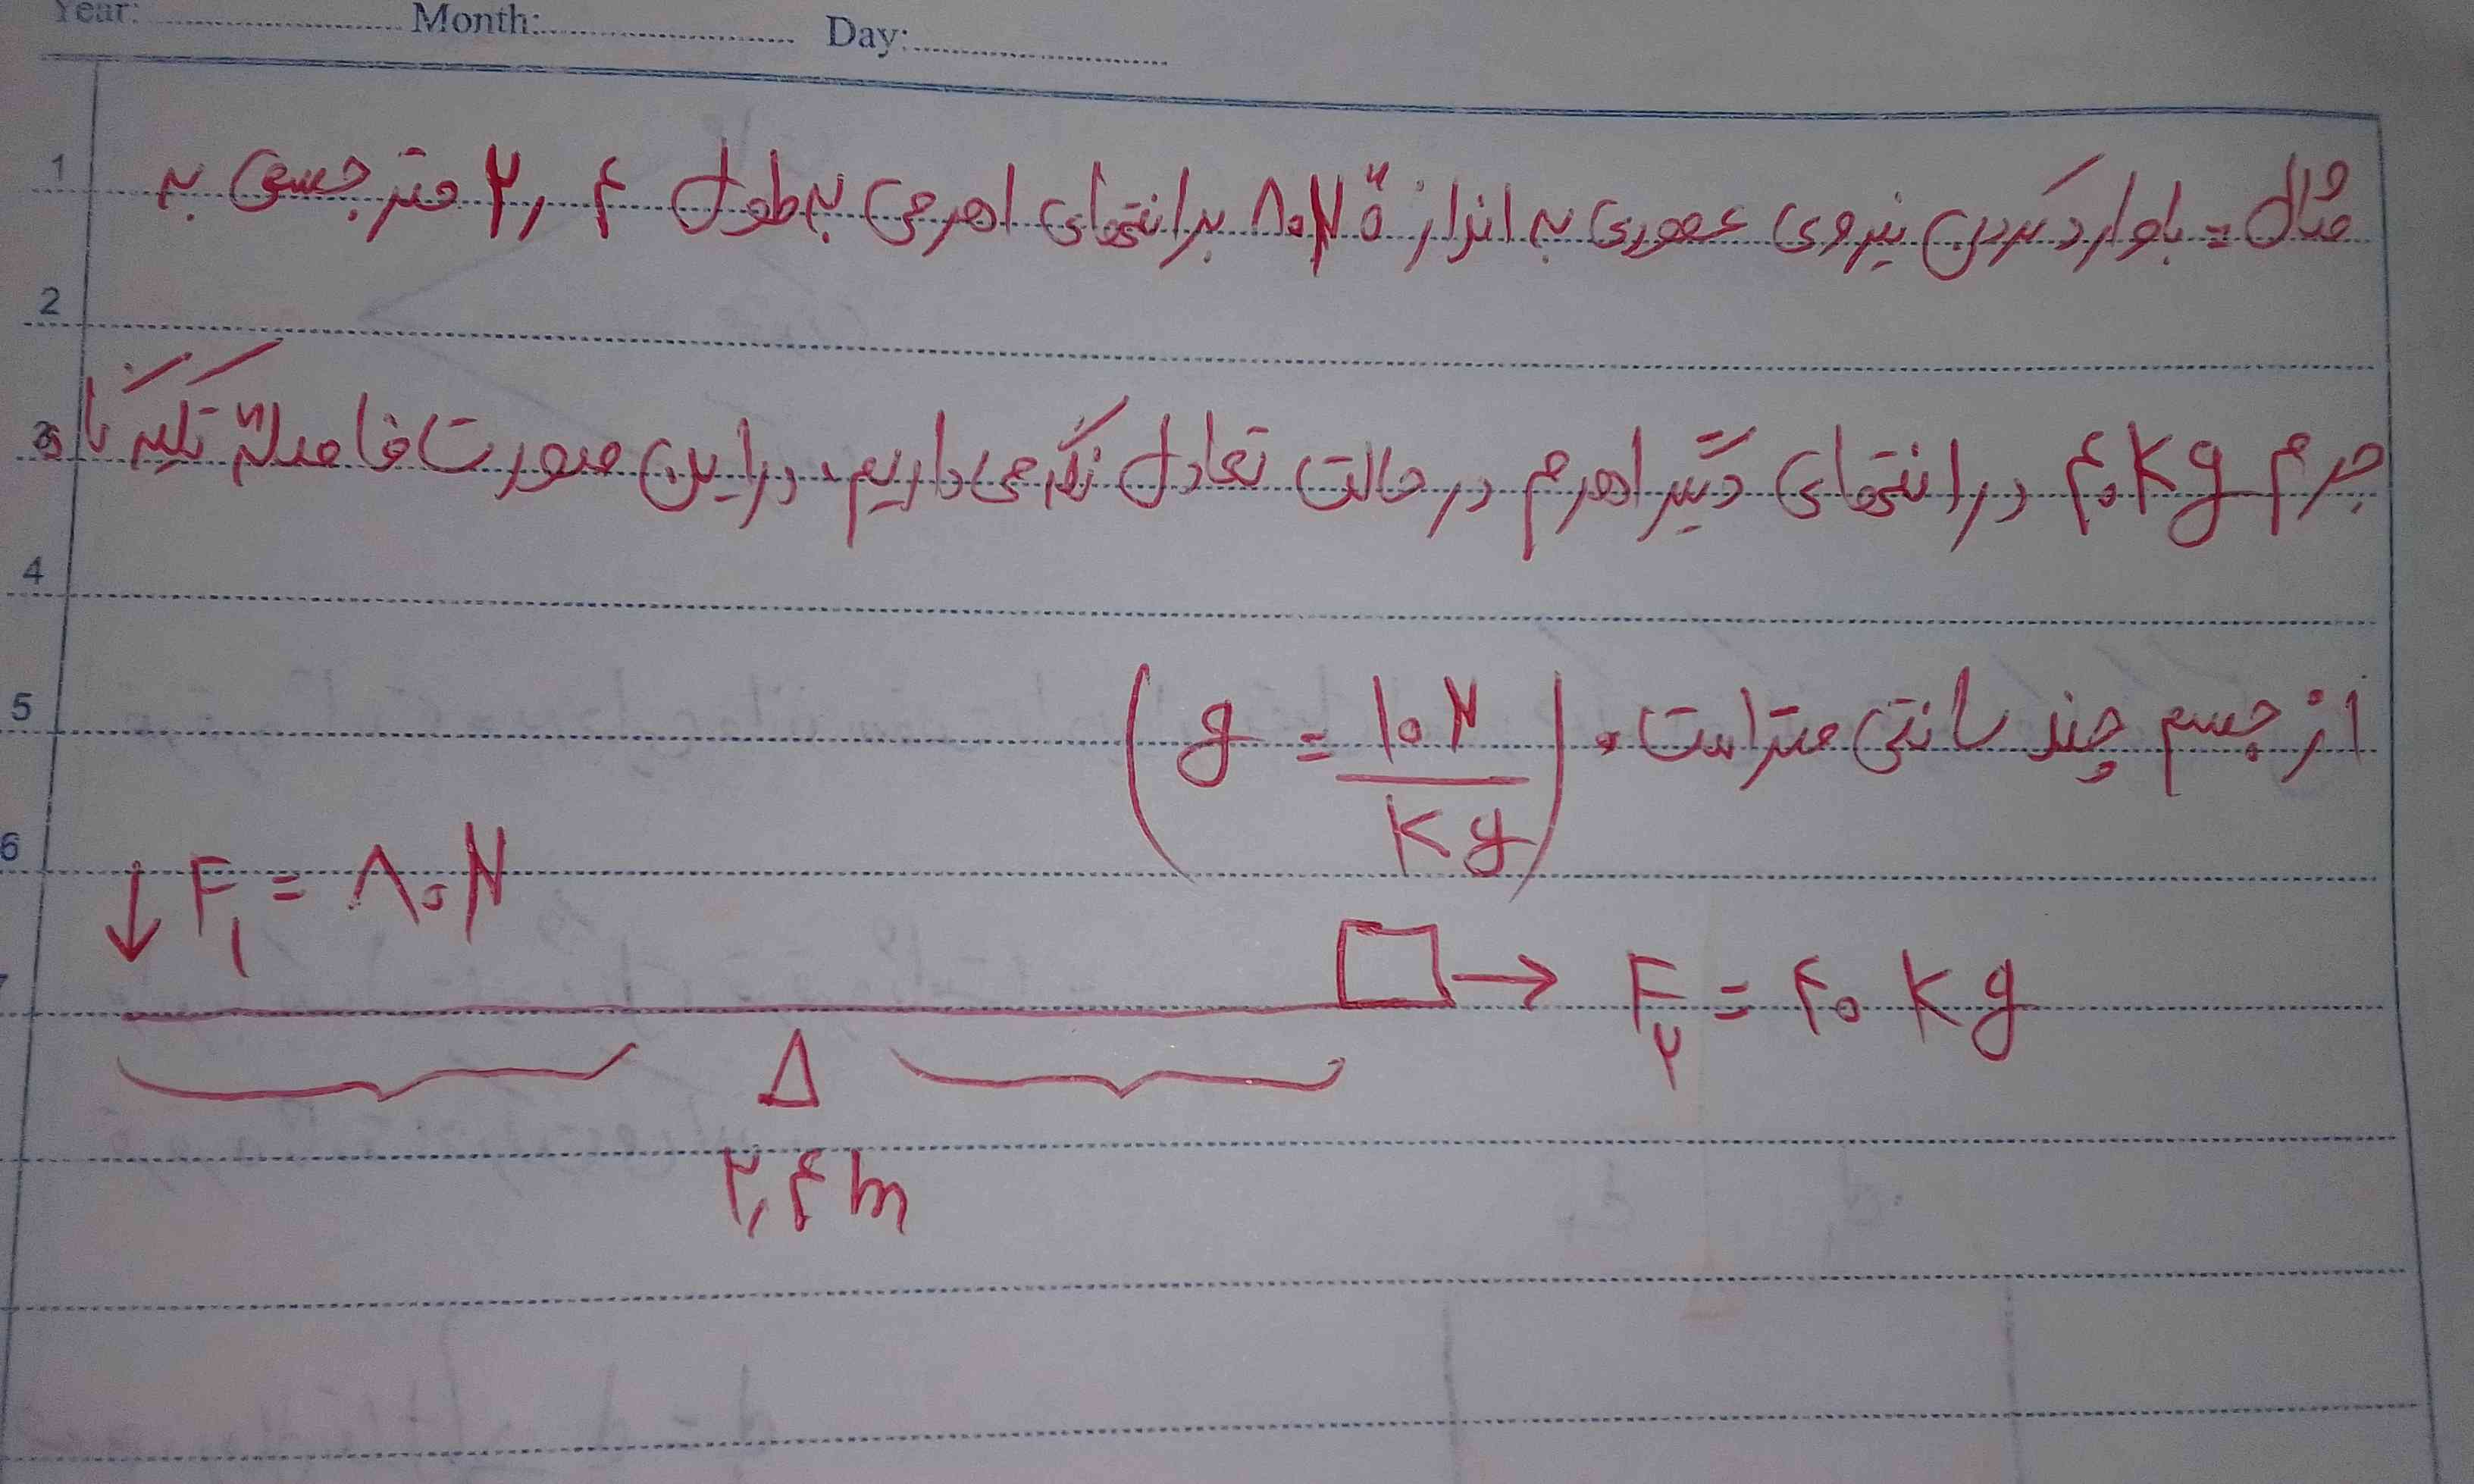 Year: Month: Day:
1 مثال = با وارد کردن نیروی عمودی به اندازهٔ ۸۰N بر انتهای اهرمی به طول ۲٫۴ متر جسمی به
2
3 جرم ۴۰kg در انتهای دیگر اهرم در حالت تعادل نگه می‌داریم، در این صورت فاصلهٔ تکیه‌گاه
4
5 از جسم چند سانتی متر است. (g = ۱۰N/Kg)
6 ↓ F₁ = ۸۰N
7 → F₂ = ۴۰ Kg
۲٫۴m